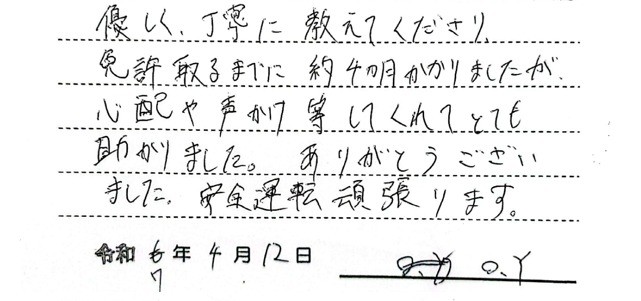 優しく、丁寧に 教えてくださり、
免許取るまでに 約4ヵ月かかりましたが、
心配や声かけ等してくれてとても
助かりました。ありがとうござい
ました。安全運転頑張ります。
令和 6年 4月 12日 O.Y
7